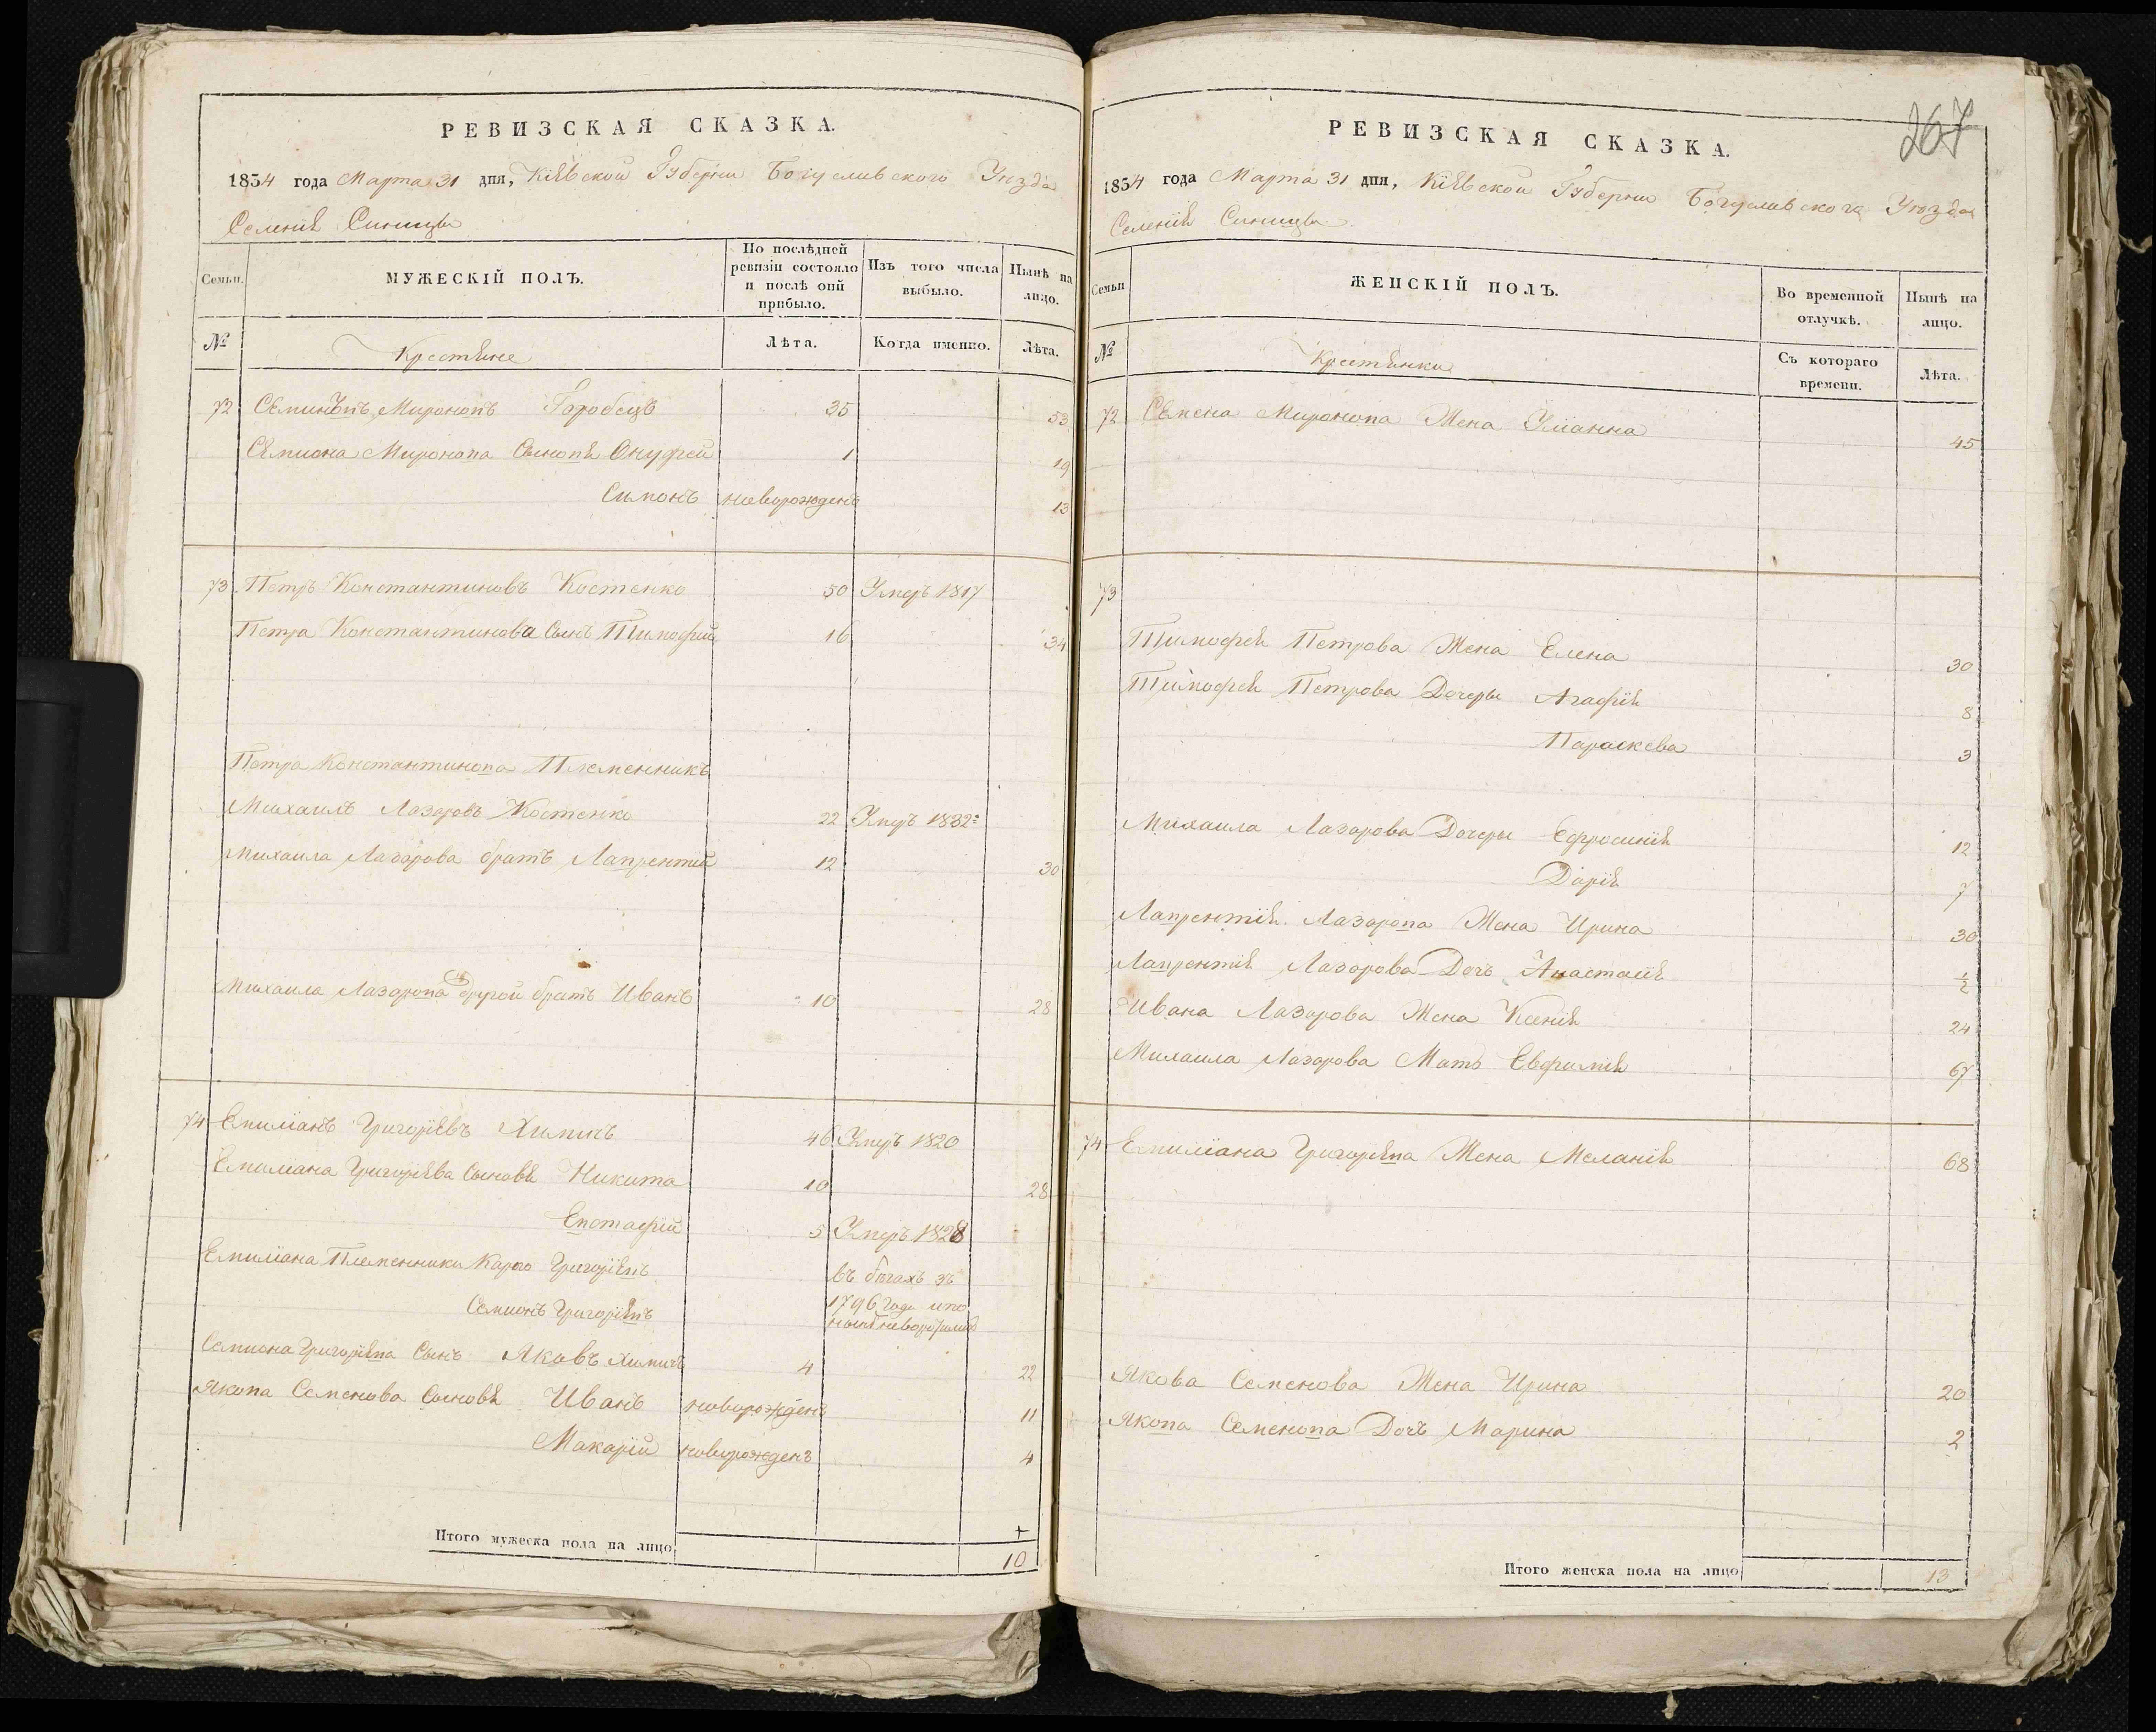 РЕВИЗСКАЯ СКАЗКА.
1834 года Марта 31 дня, Кіевской Губерніи Богуславского Уезда
Селенія Синицы
Семьи.
МУЖЕСКІЙ ПОЛЪ.
По послѣдней ревизіи состояло и послѣ оной прибыло.
Изъ того числа выбыло.
Нынѣ на лицо.
№
Крестяне
Лѣта.
Когда именно.
Лѣта.
72 Симионъ Миронопъ Горобецъ 35 53
Симиона Миронопа Сынопя Онуфрей 1 19
Симонъ новорожденъ 13
73 Петръ Константиновъ Костенко 50 Умеръ 1817
Петра Константинова Сынъ Тимофей 16 34
Петра Константинопа Племенникъ
Михаилъ Лазаровъ Костенко 22 Умеръ 1832
Михаила Лазарова братъ Лапрентій 12 30
Михаила Лазаропа другой братъ Иванъ 10 28
74 Емиліанъ Григоріевъ Химичъ 46 Умеръ 1820
Емиліана Григоріева Сыновя Никита 10 28
Епстафій 5 Умеръ 1828
Емиліана Племенники Карпо Григоріепъ въ бѣгахъ зъ
Семионъ Григоріепъ 1796 года и по
ныне
Семиона Григоріепа Сынъ Яковъ Химичъ 4 22
Якопа Семенова Сыновя Иванъ новорожденъ 11
Макарій новорожденъ 4
Итого мужеска пола на лицо 10
267
РЕВИЗСКАЯ СКАЗКА.
1834 года Марта 31 дня, Кіевской Губерніи Богуславского Уезда
Селенія Синицы
Семьи
ЖЕНСКІЙ ПОЛЪ.
Во временной отлучкѣ.
Нынѣ на лицо.
№
Крестянки
Съ котораго времени.
Лѣта.
72 Семена Миронопа Жена Уліанна 45
73
Тимофея Петрова Жена Елена 30
Тимофея Петрова Дочеры Агафія 8
Параскева 3
Михаила Лазарова Дочеры Ефросинія 12
Дарія 7
Лапрентія Лазаропа Жена Ирина 30
Лапрентія Лазарова Дочъ Анастасія 1/2
Ивана Лазарова Жена Ксенія 24
Михаила Лазарова Мать Евфимія 67
74 Емиліана Григоріепа Жена Меланія 68
Якова Семенова Жена Ирина 20
Якопа Семенопа Дочъ Марина 2
Итого женска пола на лицо 13